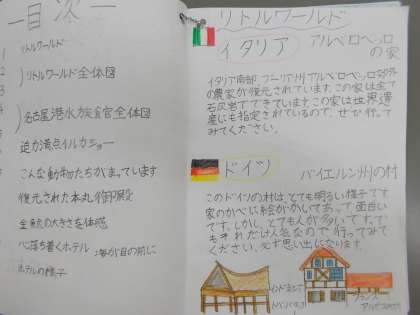 目次
リトルワールド
リトルワールド全体図
名古屋港水族館全体図
迫力満点イルカショー
こんな動物たちがまっています
復元された本丸御殿
金鯱の大きさを体感
心落ち着くホテル
海が目の前に
ホテルの様子
1
2
3
リトルワールド
イタリア アルベロベッロ
の家
イタリア南部、プーリア州アルベロベッロ郊外
の農家が復元されています。この家は全て
石灰岩でできています。この家は世界遺
産にも指定されているので、ぜひ行って
みてください。
ドイツ バイエルン州の村
このドイツの村は、とても明るい様子です。
家のかべに絵がかいてあって面白い
です。しかし、とても人が多いです。で
もそれだけ人気なので行ってみてく
ださい。必ず思い出になります。
インドネシア
フランス
アルザス